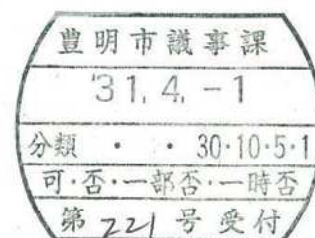 豊明市議事課
'31.4.-1
分類 ・ ・ 30・10・5・1
可・否・一部否・一時否
第 221 号受付